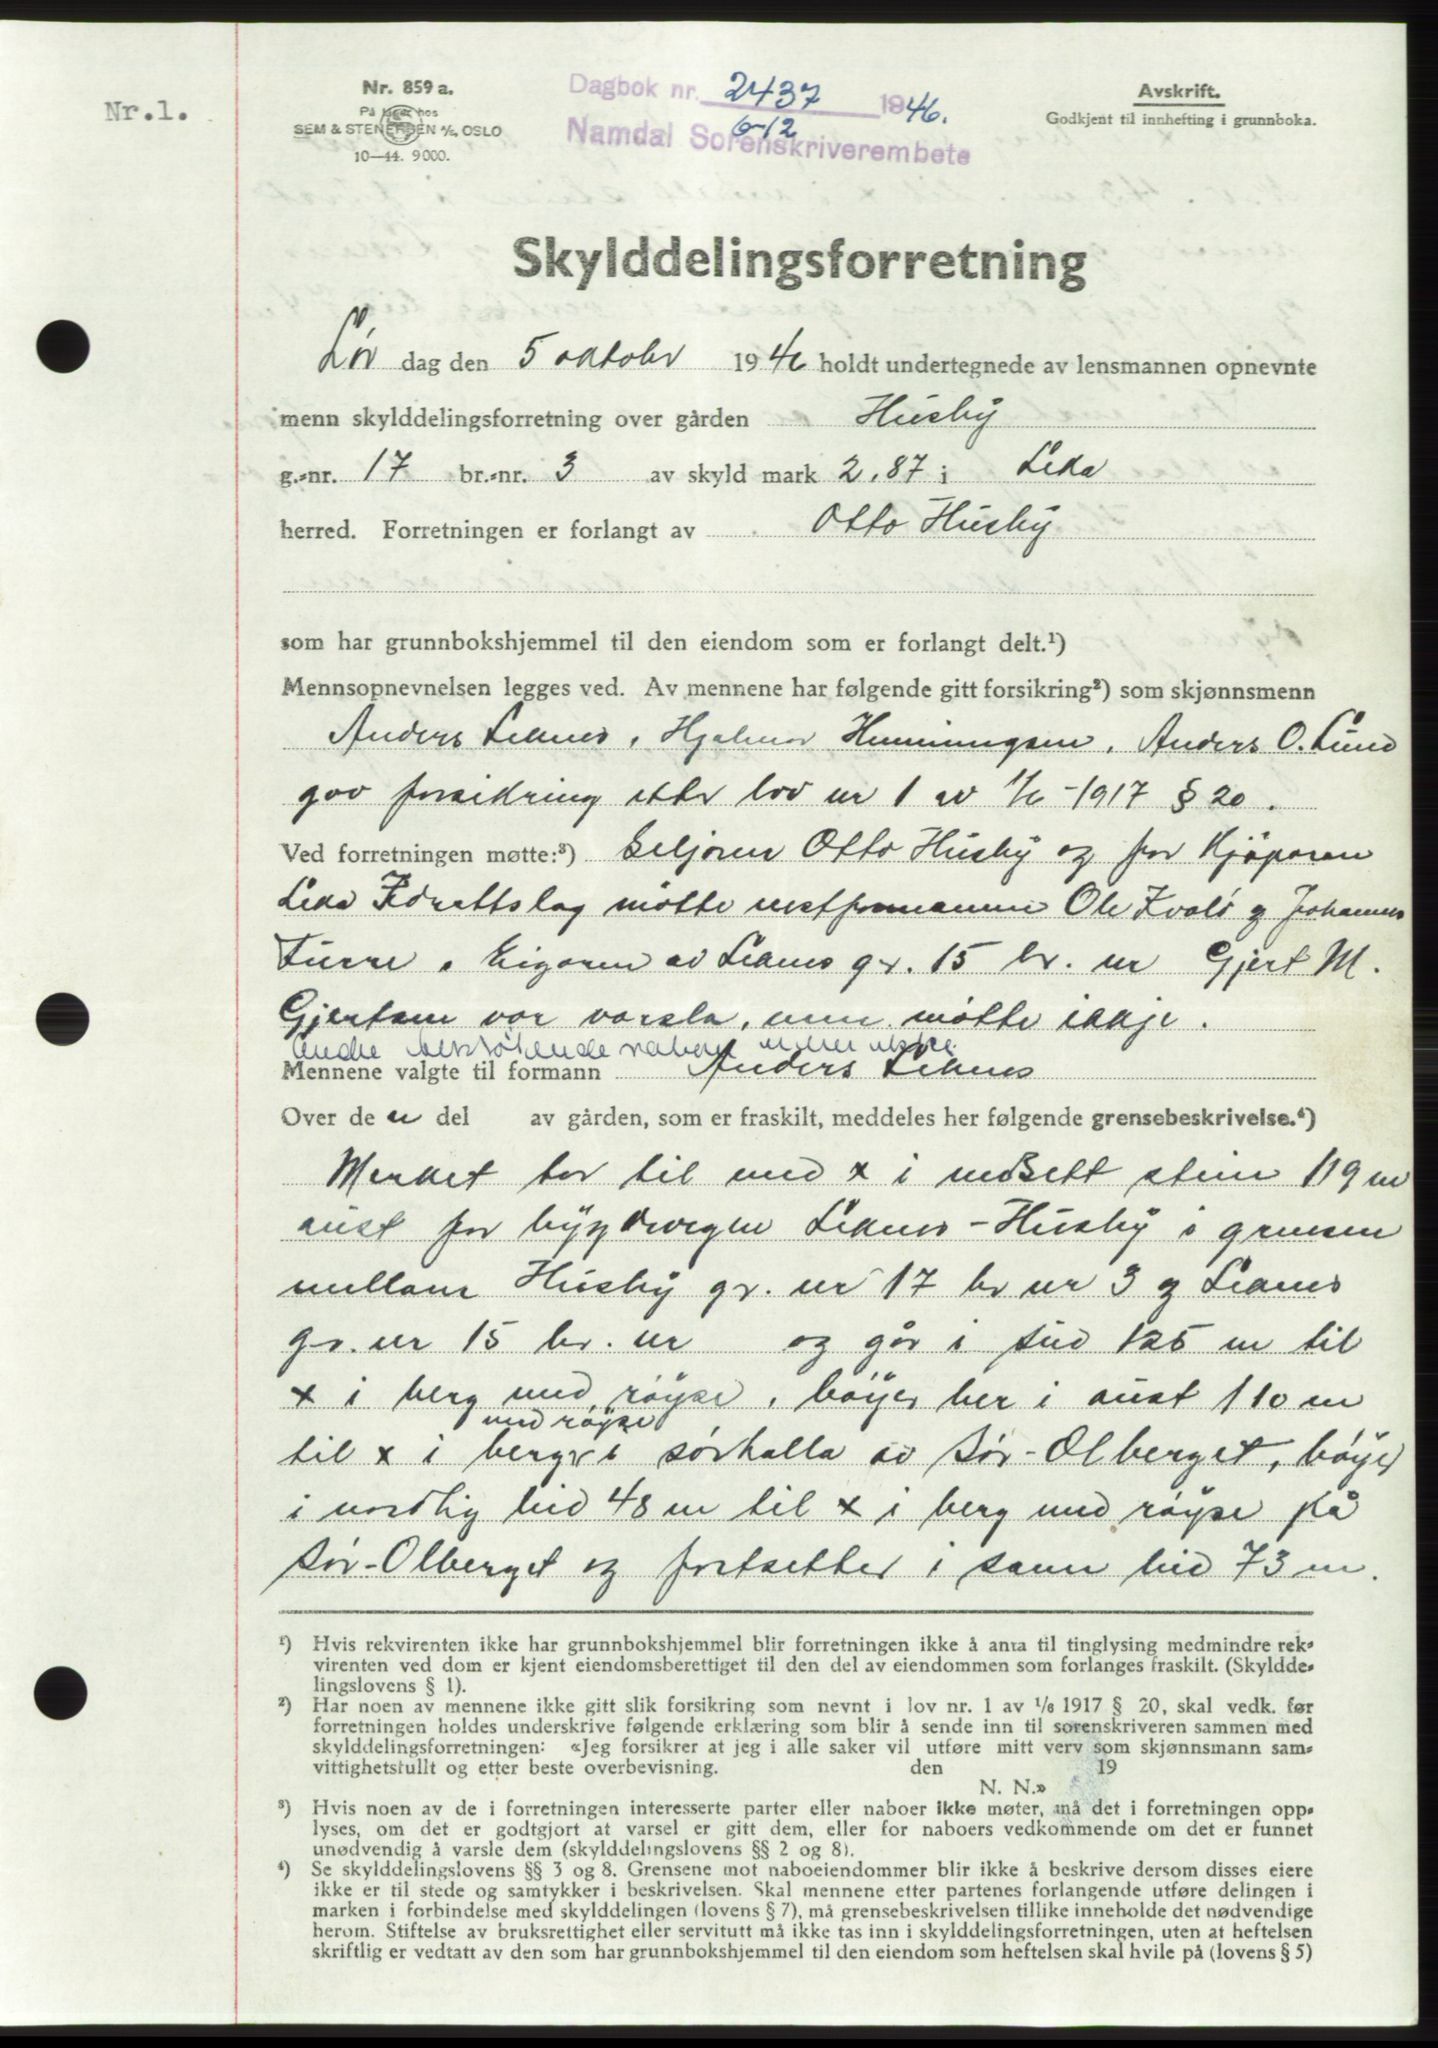 Nr.1.
Nr. 859 a.
På lager hos
SEM & STENERSEN A/S, OSLO
10—44. 9000.
Dagbok nr. 2437 1946.
6-12
Namdal Sorenskriverembete
Avskrift.
Godkjent til innhefting i grunnboka.
Skylddelingsforretning
Lør dag den 5 oktober 1946 holdt undertegnede av lensmannen opnevnte
menn skylddelingsforretning over gården Husby
g.-nr. 17 br.-nr. 3 av skyld mark 2,87 i Leka
herred. Forretningen er forlangt av Otto Husby
som har grunnbokshjemmel til den eiendom som er forlangt delt.¹)
Mennsopnevnelsen legges ved. Av mennene har følgende gitt forsikring²) som skjønnsmenn
Anders Leknes, Hjalmar Henningsen, Anders O. Lund
gav forsikring etter lov nr 1 av 1/6-1917 § 20.
Ved forretningen møtte:³) Seljaren Otto Husby og for Kjøparen
Leka Idrettslag møtte nestformannen Ole Kvalø og Johannes
Furre. Eigaren av Leknes gr. 15 br. nr Gjert M.
Gjertsen var varsla, men møtte ikkje.
Andre naboer ikkje.
Mennene valgte til formann Anders Leknes
Over de n del av gården, som er fraskilt, meddeles her følgende grensebeskrivelse.⁴)
Merket tar til med x i nedsett stein 119 m
aust for bygdevegen Leknes - Husby i grensen
mellom Husby gr. nr 17 br nr 3 og Leknes
gr. nr 15 br. nr og går i sud 125 m til
x i berg med røyse, bøyer her i aust 110 m
med røyse
til x i berg i sørhalla av Sør-Olberget, bøyer
i nordlig leid 48 m til x i berg med røyse på
Sør-Olberget og fortsetter i samme leid 73 m.
¹) Hvis rekvirenten ikke har grunnbokshjemmel blir forretningen ikke å anta til tinglysing medmindre rek-
virenten ved dom er kjent eiendomsberettiget til den del av eiendommen som forlanges fraskilt. (Skyldde-
lingslovens § 1).
²) Har noen av mennene ikke gitt slik forsikring som nevnt i lov nr. 1 av ¹/₆ 1917 § 20, skal vedk. før
forretningen holdes underskrive følgende erklæring som blir å sende inn til sorenskriveren sammen med
skylddelingsforretningen: «Jeg forsikrer at jeg i alle saker vil utføre mitt verv som skjønnsmann sam-
vittighetsfullt og etter beste overbevisning. den 19
N. N.»
³) Hvis noen av de i forretningen interesserte parter eller naboer ikke møter, må det i forretningen opp-
lyses, om det er godtgjort at varsel er gitt dem, eller for naboers vedkommende om det er funnet
unødvendig å varsle dem (skylddelingslovens §§ 2 og 8).
⁴) Se skylddelingslovens §§ 3 og 8. Grensene mot naboeiendommer blir ikke å beskrive dersom disses eiere
ikke er til stede og samtykker i beskrivelsen. Skal mennene etter partenes forlangende utføre delingen i
marken i forbindelse med skylddelingen (lovens § 7), må grensebeskrivelsen tillike inneholde det nødvendige
herom. Stiftelse av bruksrettighet eller servitutt må ikke tas inn i skylddelingsforretningen, uten at heftelsen
skriftlig er vedtatt av den som har grunnbokshjemmel til den eiendom som heftelsen skal hvile på (lovens § 5)